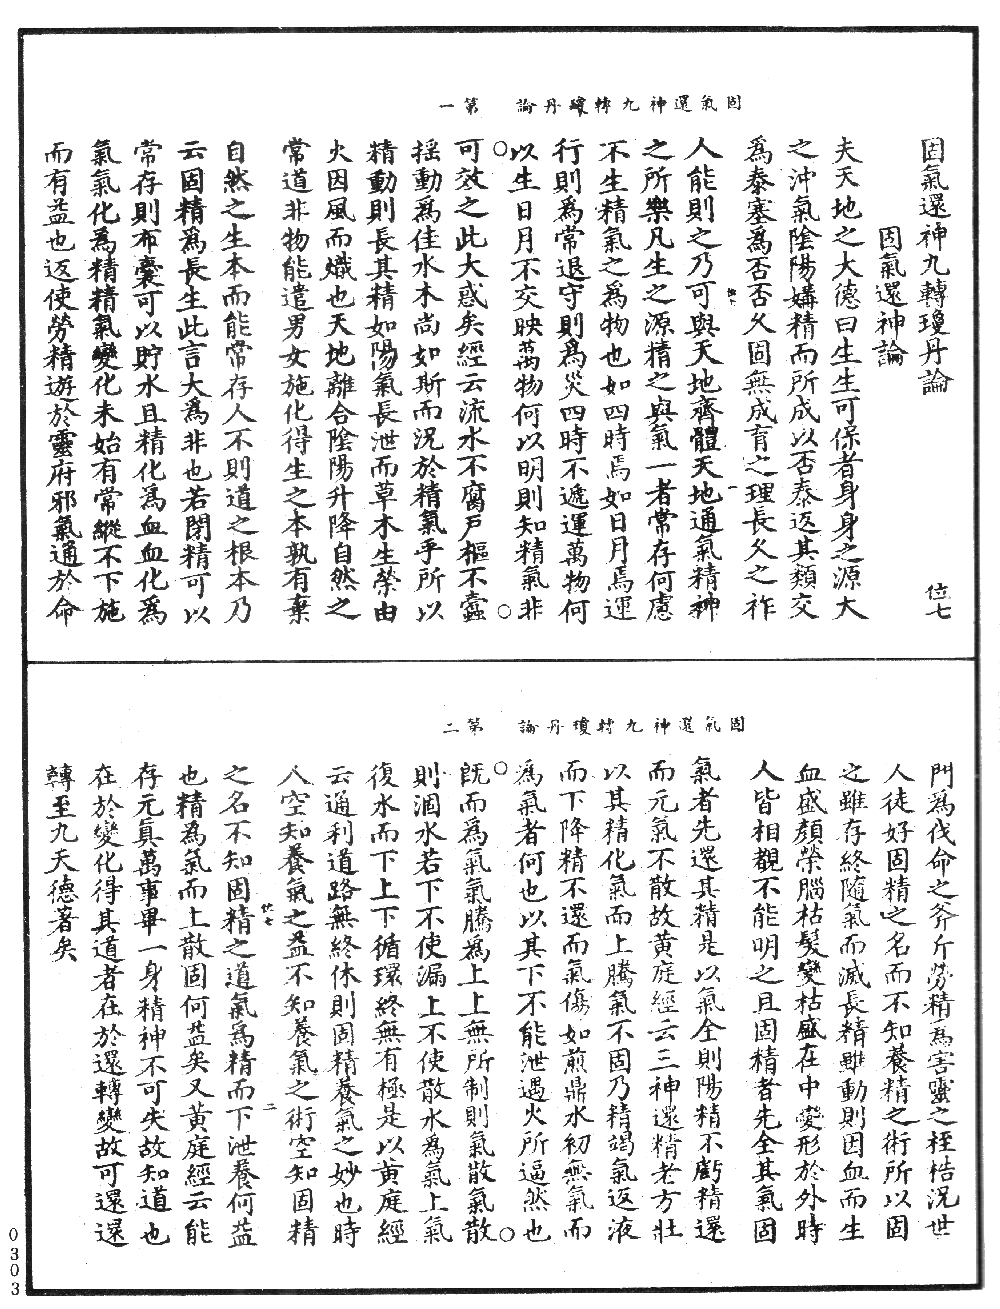 固氣還神九轉瓊丹論　第一
固氣還神九轉瓊丹論　位七
固氣還神論
夫天地之大德曰生生可保者身身之源大
之沖氣陰陽媾精而所成以否泰返其類交
為泰塞為否否久固無成育之理長久之祚
人能則之乃可與天地齊體天地通氣精神
之所樂凡生之源精之與氣一者常存何慮
不生精氣之為物也如四時焉如日月焉運
行則為常退守則為災四時不遞運萬物何
以生日月不交映萬物何以明則知精氣非
可效之此大惑矣經云流水不腐戶樞不蠹
揺動為佳水木尚如斯而況於精氣乎所以
精動則長其精如陽氣長泄而草木生榮由
火因風而熾也天地離合陰陽升降自然之
常道非物能遣男女施化得生之本孰有棄
自然之生本而能常存人不則道之根本乃
云固精為長生此言大為非也若閉精可以
常存則布囊可以貯水且精化為血血化為
氣氣化為精精氣變化未始有常縱不下施
而有益也返使勞精遊於靈府邪氣通於命
固氣還神九轉瓊丹論　第二
門為伐命之斧斤勞精為害靈之桎梏況世
人徒好固精之名而不知養精之術所以固
之雖存終隨氣而滅長精雖動則因血而生
血盛顏榮腦枯髮變枯盛在中變形於外時
人皆相覩不能明之且固精者先全其氣固
氣者先還其精是以氣全則陽精不虧精還
而元氣不散故黃庭經云三神還精老方壯
以其精化氣而上騰氣不固乃精竭氣返液
而下降精不還而氣傷如煎鼎水初無氣而
為氣者何也以其下不能泄遇火所逼然也
既而為氣氣騰為上上無所制則氣散氣散
則涸水若下不使漏上不使散水為氣上氣
復水而下上下循環終無有極是以黃庭經
云通利道路無終休則固精養氣之妙也時
人空知養氣之益不知養氣之術空知固精
之名不知固精之道氣為精而下泄養何益
也精為氣而上散固何益矣又黃庭經云能
存元真萬事畢一身精神不可失故知道也
在於變化得其道者在於還轉變故可還還
轉至九天德著矣
位七　二
0303